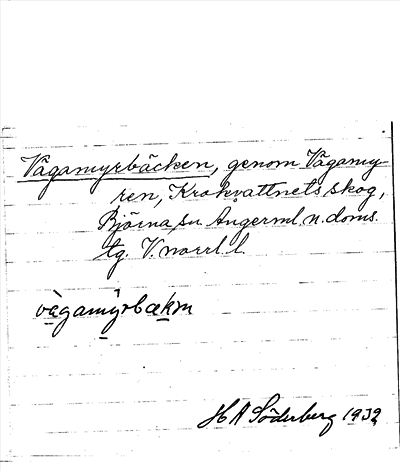 Vågamyrbäcken, genom Vågamy-
ren, Krokvattnets skog,
Björna sn. Ångerml. n. doms.
tg. V. norrl. l.
vågamyrbækm
H A Söderberg 1932